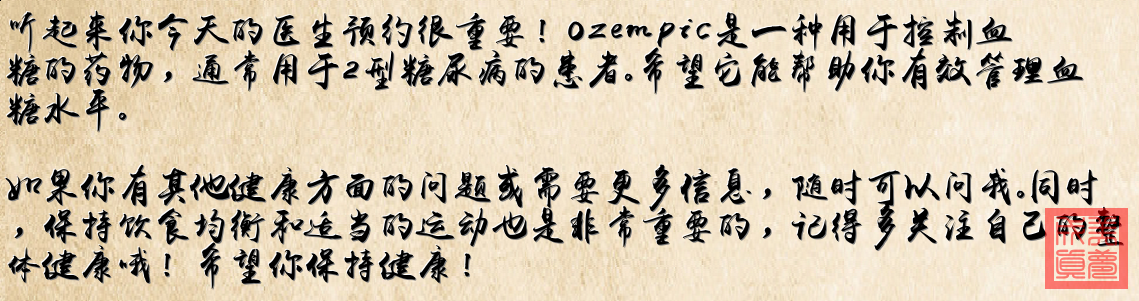 听起来你今天的医生预约很重要！Ozempic是一种用于控制血
糖的药物，通常用于2型糖尿病的患者。希望它能帮助你有效管理血
糖水平。
如果你有其他健康方面的问题或需要更多信息，随时可以问我。同时
，保持饮食均衡和适当的运动也是非常重要的，记得多关注自己的整
体健康哦！希望你保持健康！